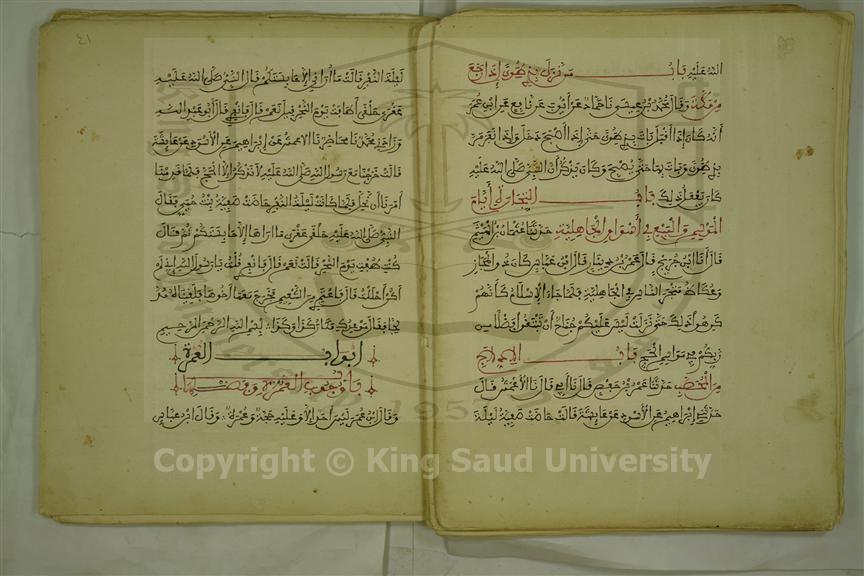 الله عليه باب من نزل بذي طوى إذا رجع
من مكة وقال محمد بن عيسى نا حماد عن أيوب عن نافع عن ابن عمر
أنه كان إذا أقبل بات بذي طوى حتى إذا أصبح دخل وإذا نفر مر
بذي طوى وبات بها حتى يصبح وكان يذكر أن النبي صلى الله عليه
كان يفعل ذلك باب التجارة أيام
الموسم والبيع في أسواق الجاهلية حدثنا عثمان بن الهيثم
قال أنا ابن جريج قال عمرو بن دينار قال ابن عباس كان ذو المجاز
وعكاظ متجر الناس في الجاهلية فلما جاء الإسلام كأنهم
كرهوا ذلك حتى نزلت ليس عليكم جناح أن تبتغوا فضلا من
ربكم في مواسم الحج باب الإدلاج
من المحصب حدثنا عمر بن حفص قال نا أبي قال نا الأعمش قال
حدثني إبراهيم عن الأسود عن عائشة قالت حاضت صفية ليلة
٤١
ليلة النفر فقالت ما أراني إلا حابستكم قال النبي صلى الله عليه
عقرى حلقى أطافت يوم النحر قيل نعم قال فانفري قال أبو عبد الله
وزادني محمد نا محاضر نا الأعمش عن إبراهيم عن الأسود عن عائشة
قالت خرجنا مع رسول الله صلى الله عليه لا نذكر إلا الحج فلما قدمنا
أمرنا أن نحل فلما كانت ليلة النفر حاضت صفية بنت حيي فقال
النبي صلى الله عليه حلقى عقرى ما أراها إلا حابستكم ثم قال
كنت طفت يوم النحر قالت نعم قال فانفري قلت يا رسول الله إني لم
أكن أهللت قال فاعتمري من التنعيم فخرج معها أخوها فلقيناه مد
لجا فقال موعدك مكان كذا وكذا بسم الله الرحمن الرحيم
أبواب العمرة
باب وجوب العمرة وفضلها
وقال ابن عمر ليس أحد إلا وعليه حجة وعمرة وقال ابن عباس
Copyright © King Saud University